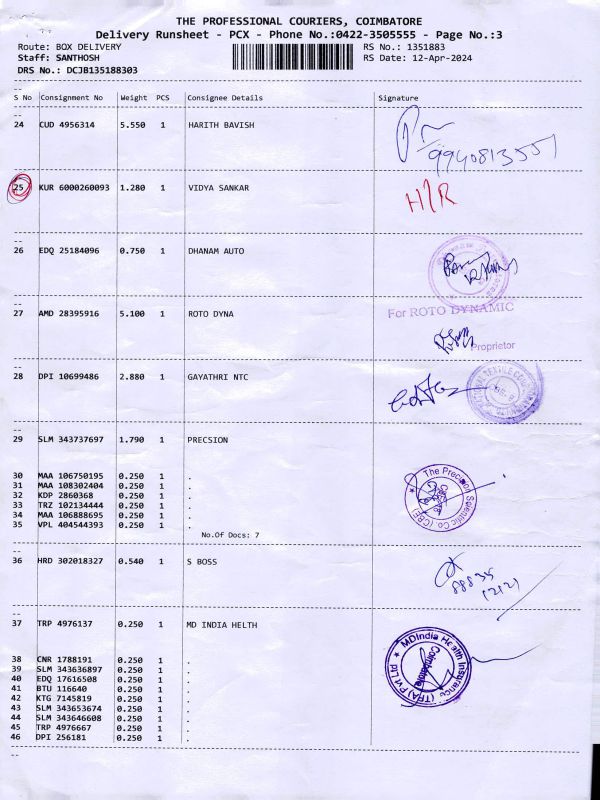 THE PROFESSIONAL COURIERS, COIMBATORE
Delivery Runsheet - PCX - Phone No.:0422-3505555 - Page No.:3
Route: BOX DELIVERY RS No.: 1351883
Staff: SANTHOSH RS Date: 12-Apr-2024
DRS No.: DCJB135188303
--
S No Consignment No Weight PCS Consignee Details Signature
--
24 CUD 4956314 5.550 1 HARITH BAVISH
--
25 KUR 6000260093 1.280 1 VIDYA SANKAR H/R
--
26 EDQ 25184096 0.750 1 DHANAM AUTO
--
27 AMD 28395916 5.100 1 ROTO DYNA For ROTO DYNAMIC
Proprietor
--
28 DPI 10699486 2.880 1 GAYATHRI NTC
--
29 SLM 343737697 1.790 1 PRECSION
The Precision Scientific Co. (CBE)
30 MAA 106750195 0.250 1 .
31 MAA 108302404 0.250 1 .
32 KDP 2860368 0.250 1 .
33 TRZ 102134444 0.250 1 .
34 MAA 106888695 0.250 1 .
35 VPL 404544393 0.250 1 .
No.Of Docs: 7
--
36 HRD 302018327 0.540 1 S BOSS
--
37 TRP 4976137 0.250 1 MD INDIA HELTH
MDIndia Health Insurance (TPA) Pvt Ltd
Coimbatore
38 CNR 1788191 0.250 1 .
39 SLM 343636897 0.250 1 .
40 EDQ 17616508 0.250 1 .
41 BTU 116640 0.250 1 .
42 KTG 7145819 0.250 1 .
43 SLM 343653674 0.250 1 .
44 SLM 343646608 0.250 1 .
45 TRP 4976667 0.250 1 .
46 DPI 256181 0.250 1 .
--